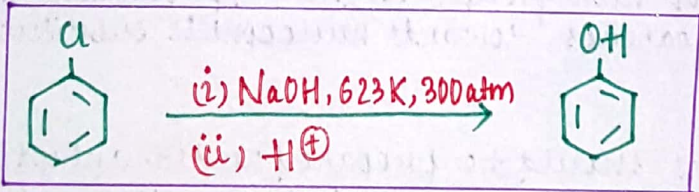 Cl
OH
(i) NaOH, 623K, 300atm
(ii) H⊕